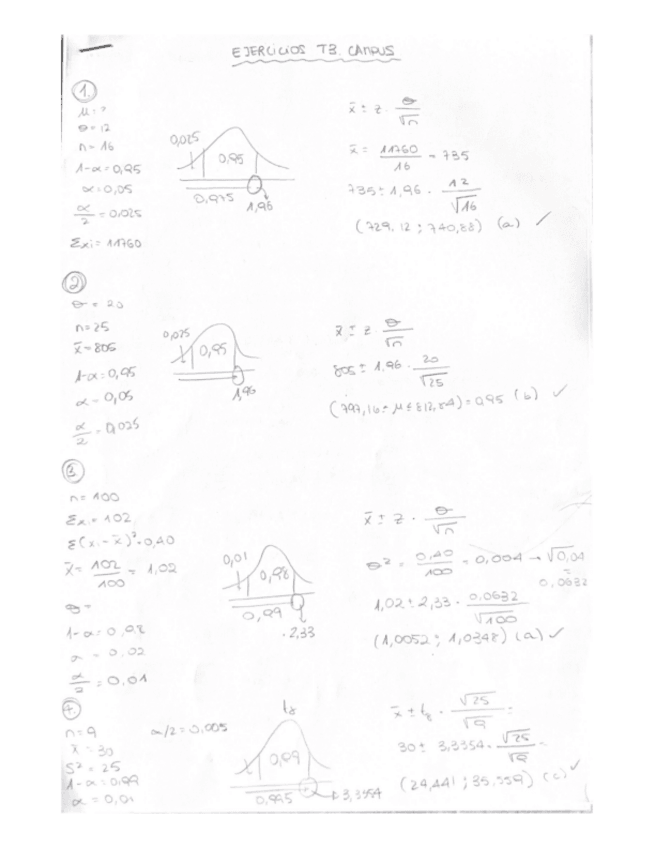 EJERCICIOS T3. CAMPUS
1.
μ = ?
σ = 12
n = 16
1-α = 0,95
α = 0,05
α/2 = 0,025
Σxi = 11760
0,025
0,95
0,975
1,96
x̄ ± z · σ/√n
x̄ = 11760/16 = 735
735 ± 1,96 · 12/√16
(729,12 ; 740,88) (a) ✓
2
σ = 20
n = 25
x̄ = 805
1-α = 0,95
α = 0,05
α/2 = 0,025
0,025
0,95
1,96
x̄ ± z · σ/√n
805 ± 1,96 · 20/√25
(797,16 ≤ μ ≤ 812,84) = 0,95 (b) ✓
3.
n = 100
Σxi = 102
Σ(xi - x̄)² = 0,40
x̄ = 102/100 = 1,02
σ =
1-α = 0,98
α = 0,02
α/2 = 0,01
0,01
0,98
0,99
2,33
x̄ ± z · σ/√n
σ² = 0,40/100 = 0,004 → √0,04
=
0,0632
1,02 ± 2,33 · 0,0632/√100
(1,0052 ; 1,0348) (a) ✓
4.
n = 9
α/2 = 0,005
x̄ = 30
S² = 25
1-α = 0,99
α = 0,01
t8
0,99
0,995
3,3554
x̄ ± t8 · √25/√9 =
30 ± 3,3354 · √25/√9 =
(24,441 ; 35,559) (c) ✓